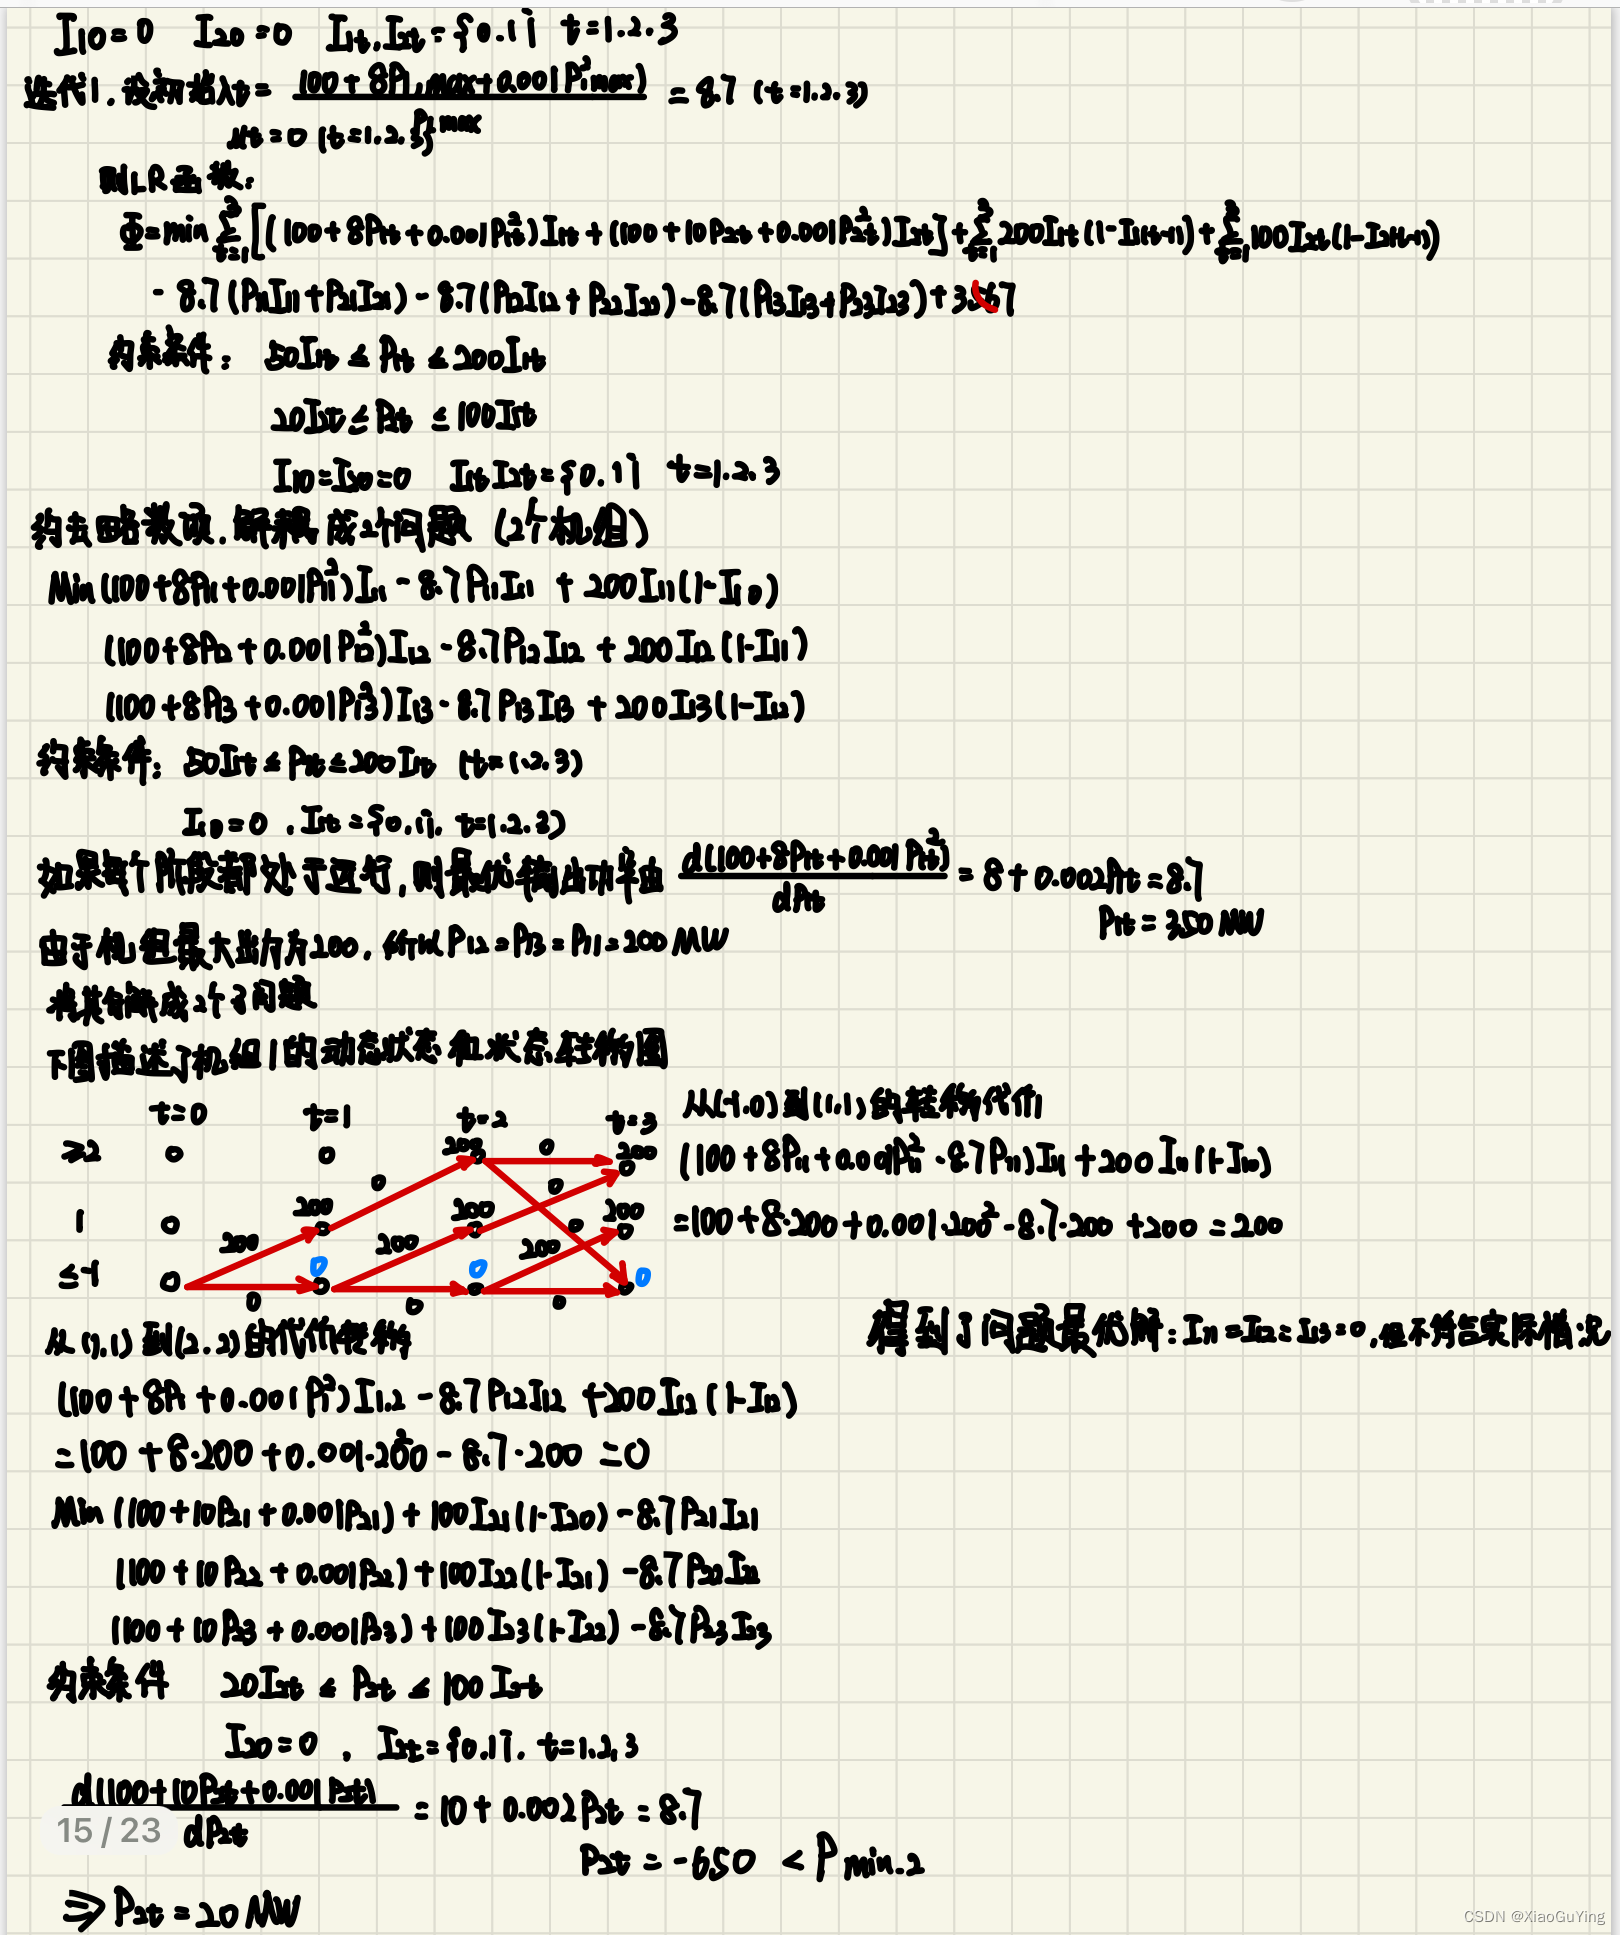 I10=0 I20=0 I1t,I2t={0.1} t=1.2.3
迭代1.设初始λt= (100+8P1,max+0.001P1²max)/P1max =8.7 (t=1.2.3)
μt=0 (t=1.2.3)
则LR函数:
Φ=min Σ(t=1→3)[(100+8P1t+0.001P1t²)I1t+(100+10P2t+0.001P2t²)I2t]+Σ(t=1→3)200I1t(1-I1(t-1))+Σ(t=1→3)100I2t(1-I2(t-1))
-8.7(P11I11+P21I21)-8.7(P12I12+P22I22)-8.7(P13I13+P23I23)+3567
约束条件: 50I1t≤P1t≤200I1t
20I2t≤P2t≤100I2t
I10=I20=0 I1t I2t={0.1} t=1.2.3
约去略数项.解耦成2个问题 (2个机组)
Min(100+8P11+0.001P11²)I11-8.7P11I11+200I11(1-I10)
(100+8P12+0.001P12²)I12-8.7P12I12+200I12(1-I11)
(100+8P13+0.001P13²)I13-8.7P13I13+200I13(1-I12)
约束条件: 50I1t≤P1t≤200I1t (t=1.2.3)
I10=0 .I1t={0.1}. t=1.2.3)
如果每个阶段都处于运行,则最优输出功率由 d(100+8P1t+0.001P1t²)/dP1t =8+0.002P1t=8.7
P1t=350MW
由于机组最大出力为200,所以P12=P13=P11=200MW
将其分解成2个子问题
下图描述了机组1的动态状态和状态转移图
t=0 t=1 t=2 t=3
从(-1.0)到(1,1)的转移代价
≥2 0 0 200 0 200
(100+8P11+0.001P11²-8.7P11)I11+200I11(1-I10)
0 0
1 0 200 200 0 200
=100+8·200+0.001·200²-8.7·200+200=200
200 200 200
≤-1 0 0 0 0
0 0 0
得到子问题最优解:I11=I12=I13=0,但不符合实际情况
从(1,1)到(2.2)的代价转移
(100+8P1+0.001P1²)I1.2-8.7P12I12+200I12(1-I11)
=100+8·200+0.001·200²-8.7·200=0
Min(100+10P21+0.001P21)+100I21(1-I20)-8.7P21I21
(100+10P22+0.001P22)+100I22(1-I21)-8.7P22I22
(100+10P23+0.001P23)+100I23(1-I22)-8.7P23I23
约束条件 20I2t≤P2t≤100I2t
I20=0 , I2t={0.1}. t=1.2.3
d(100+10P2t+0.001P2t)/dP2t =10+0.002P2t=8.7
15/23
P2t=-650<Pmin.2
⇒P2t=20MW
CSDN @XiaoGuYing